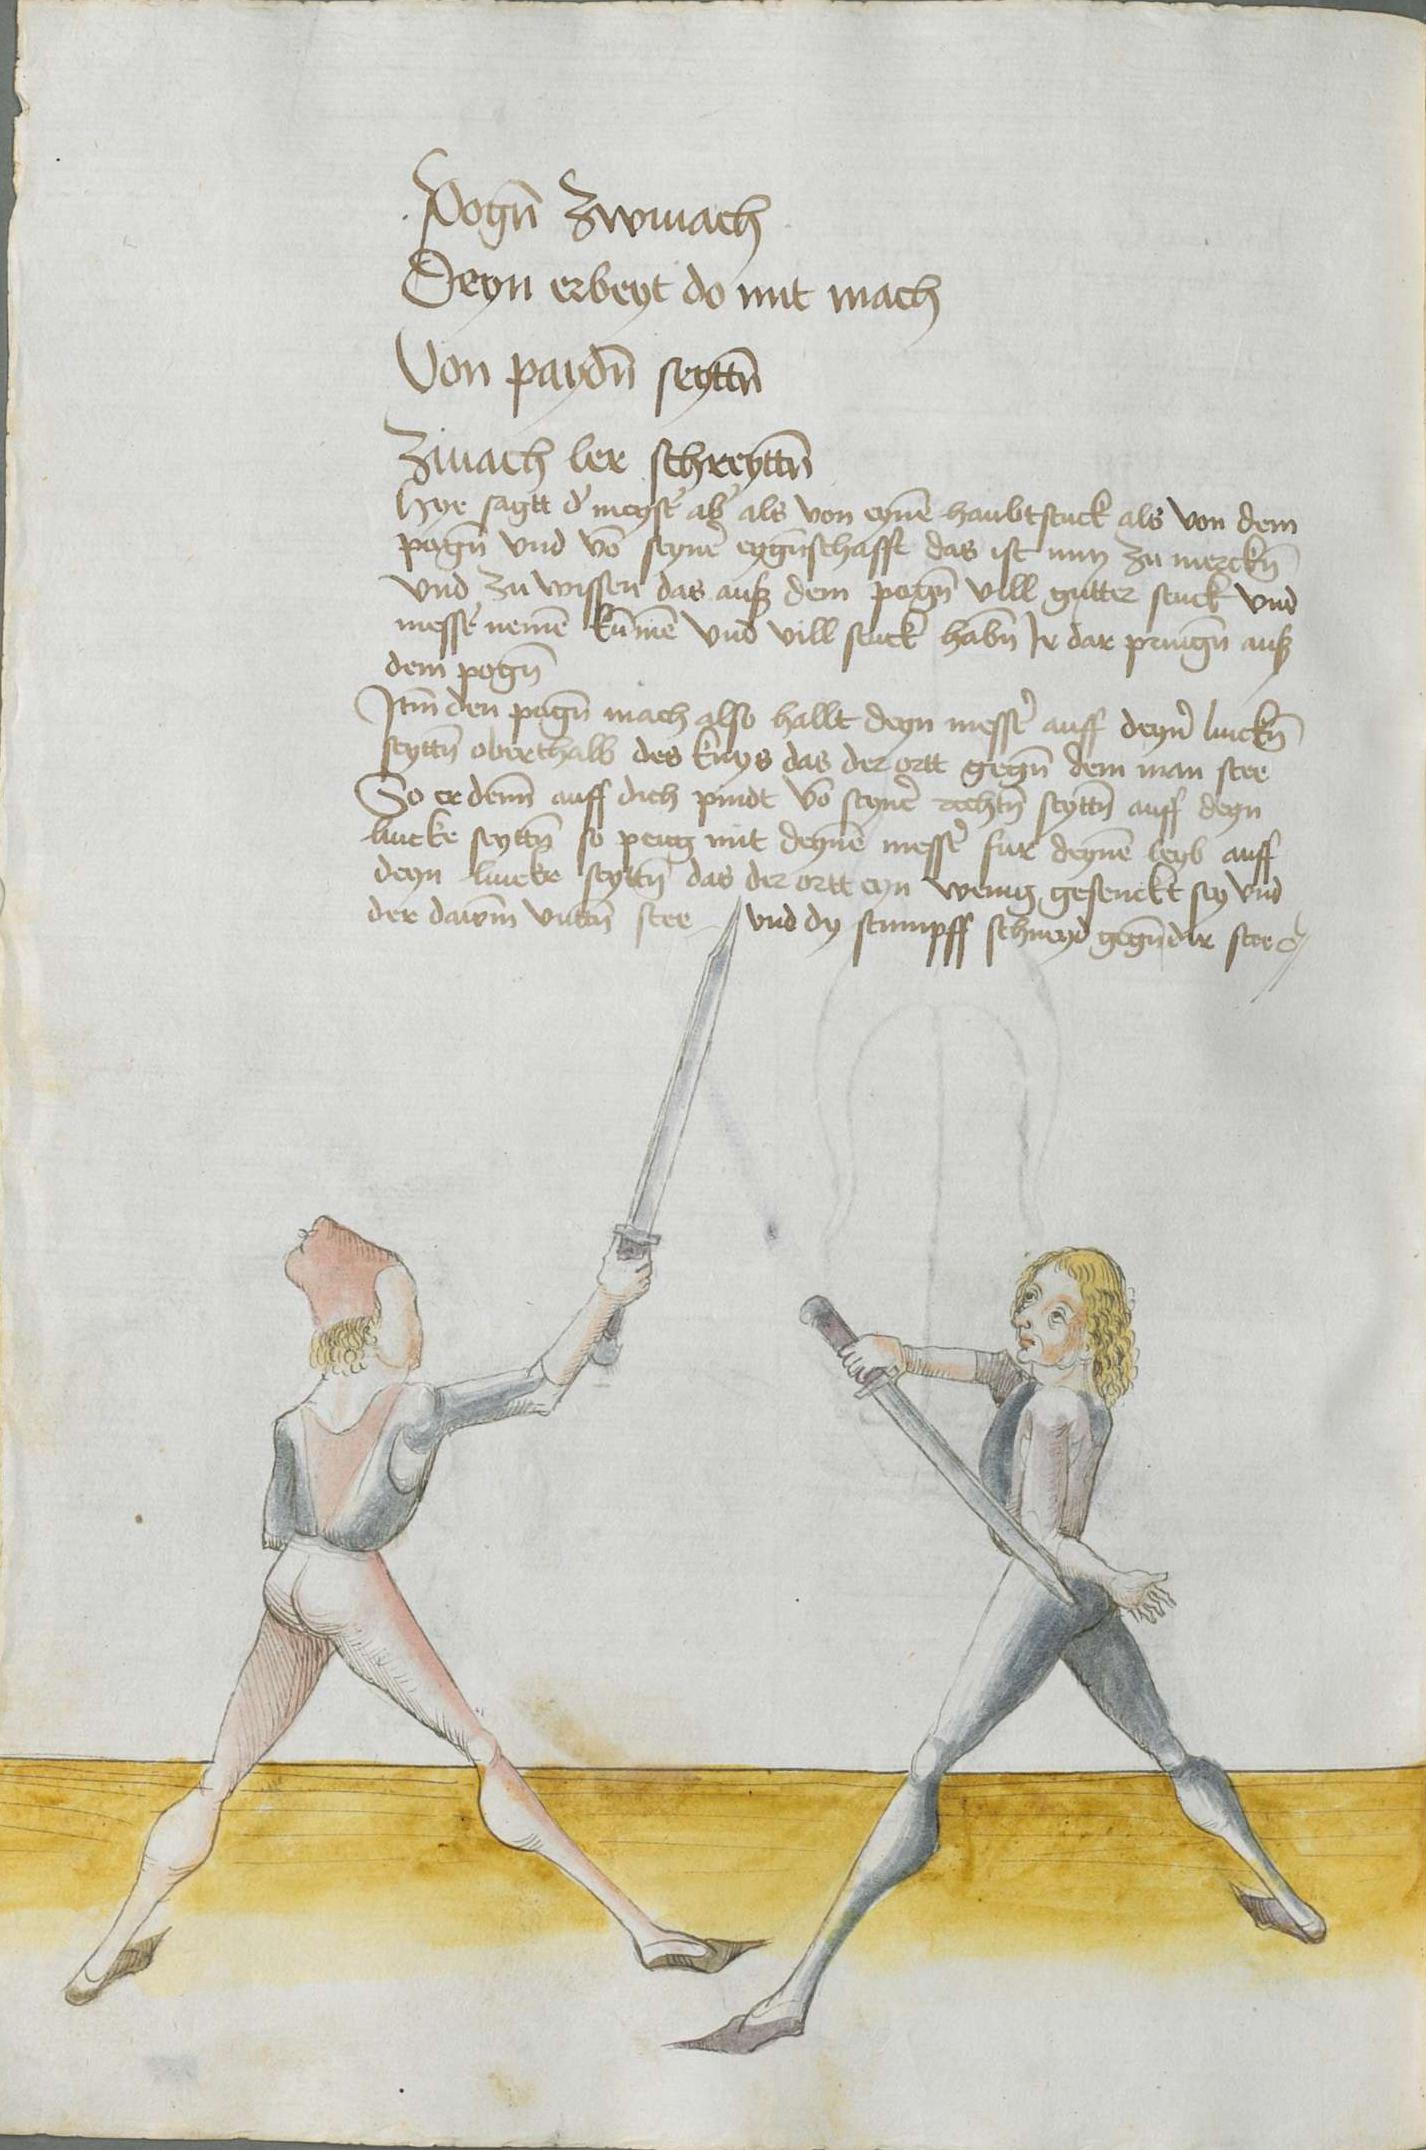 Pogñ zwmach
Deyn erbeyt do mit mach
Von paydñ seyttñ
Zwach ler schreyttñ
Hye sagtt d' meyst' ab' als von eynē haubtstuck als von dem
pogñ vnd vō seyner eygñschafft das ist nun zu merckñ
vnd zu wissen das auß dem pogñ vill gutter stuck vnd
messer nemē kūmē vnd vill stuck habñ Ir dar pringñ auß
dem pogñ
Itm̄ den pogñ mach also hallt deyn messer auff deyner linckñ
seyttñ oberthalb des knys das der ortt gegñ dem man stee
So er denn auff dich pindt vō seyner rechtñ seyttñ auff deyn
lincke seyttñ so peug mit deynē messer fur deynē leyb auff
deyn lincke seyttñ das der ortt eyn wenig gesenckt sey vnd
der dawm̄ vnttñ stee vnd dy stumpff schneyd gegñ dir stee